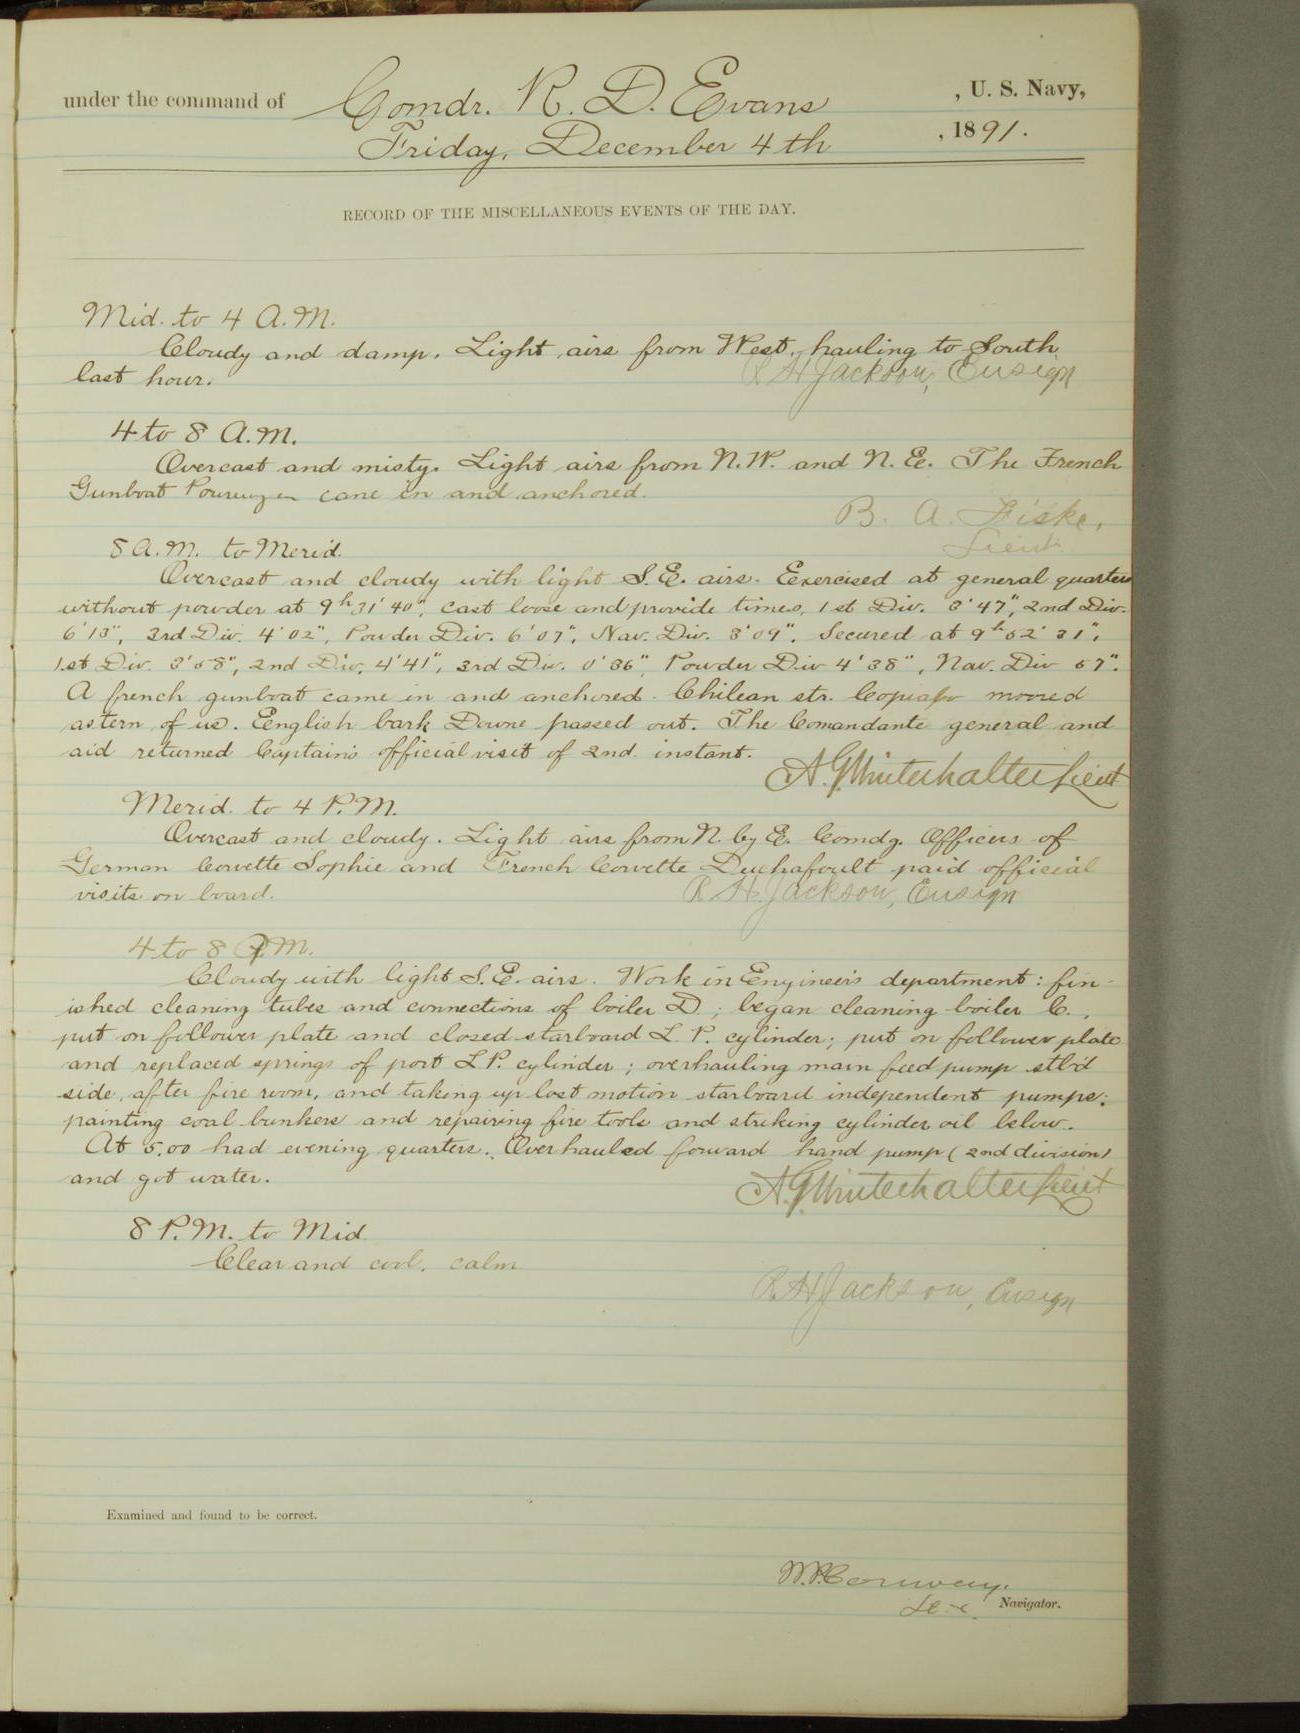 under the command of Comdr. R. D. Evans , U. S. Navy,
Friday, December 4th , 1891.
RECORD OF THE MISCELLANEOUS EVENTS OF THE DAY.
Mid. to 4 A.M.
Cloudy and damp. Light airs from West, hauling to South
last hour. R H Jackson, Ensign
4 to 8 A.M.
Overcast and misty. Light airs from N.W. and N.E. The French
Gunboat came in and anchored.
B. A. Fiske,
Lieut.
8 A.M. to Merid.
Overcast and cloudy with light S.E. airs. Exercised at general quarters
without powder at 9h 31' 40", cast loose and provide times, 1st Div. 3' 47", 2nd Div.
6' 13", 3rd Div. 4' 02", Powder Div. 6' 07", Nav. Div. 3' 09". Secured at 9h 52' 31",
1st Div. 3' 58", 2nd Div. 4' 41", 3rd Div. 0' 36", Powder Div 4' 38", Nav. Div 57".
A french gunboat came in and anchored. Chilean str. Copiapo moored
astern of us. English bark Downe passed out. The Comandante general and
aid returned Captain's official visit of 2nd instant.
A. G. Winterhalter Lieut
Merid. to 4 P.M.
Overcast and cloudy. Light airs from N. by E. Comdg. Officers of
German Corvette Sophie and French Corvette Duchafoult paid official
visits on board. R H Jackson, Ensign
4 to 8 P.M.
Cloudy with light S.E. airs. Work in Engineer's department: fin-
ished cleaning tubes and connections of boiler D; began cleaning boiler C.,
put on follower plate and closed starboard L. P. cylinder; put on follower plate
and replaced springs of port L.P. cylinder; overhauling main feed pump stb'd
side, after fire room, and taking up lost motion starboard independent pumps;
painting coal bunkers and repairing fire tools and striking cylinder oil below.
At 5.00 had evening quarters. Overhauled forward hand pump (2nd division)
and got water. A. G. Winterhalter Lieut
8 P.M. to Mid.
Clear and cool. calm
R H Jackson, Ensign
Examined and found to be correct.
Navigator.